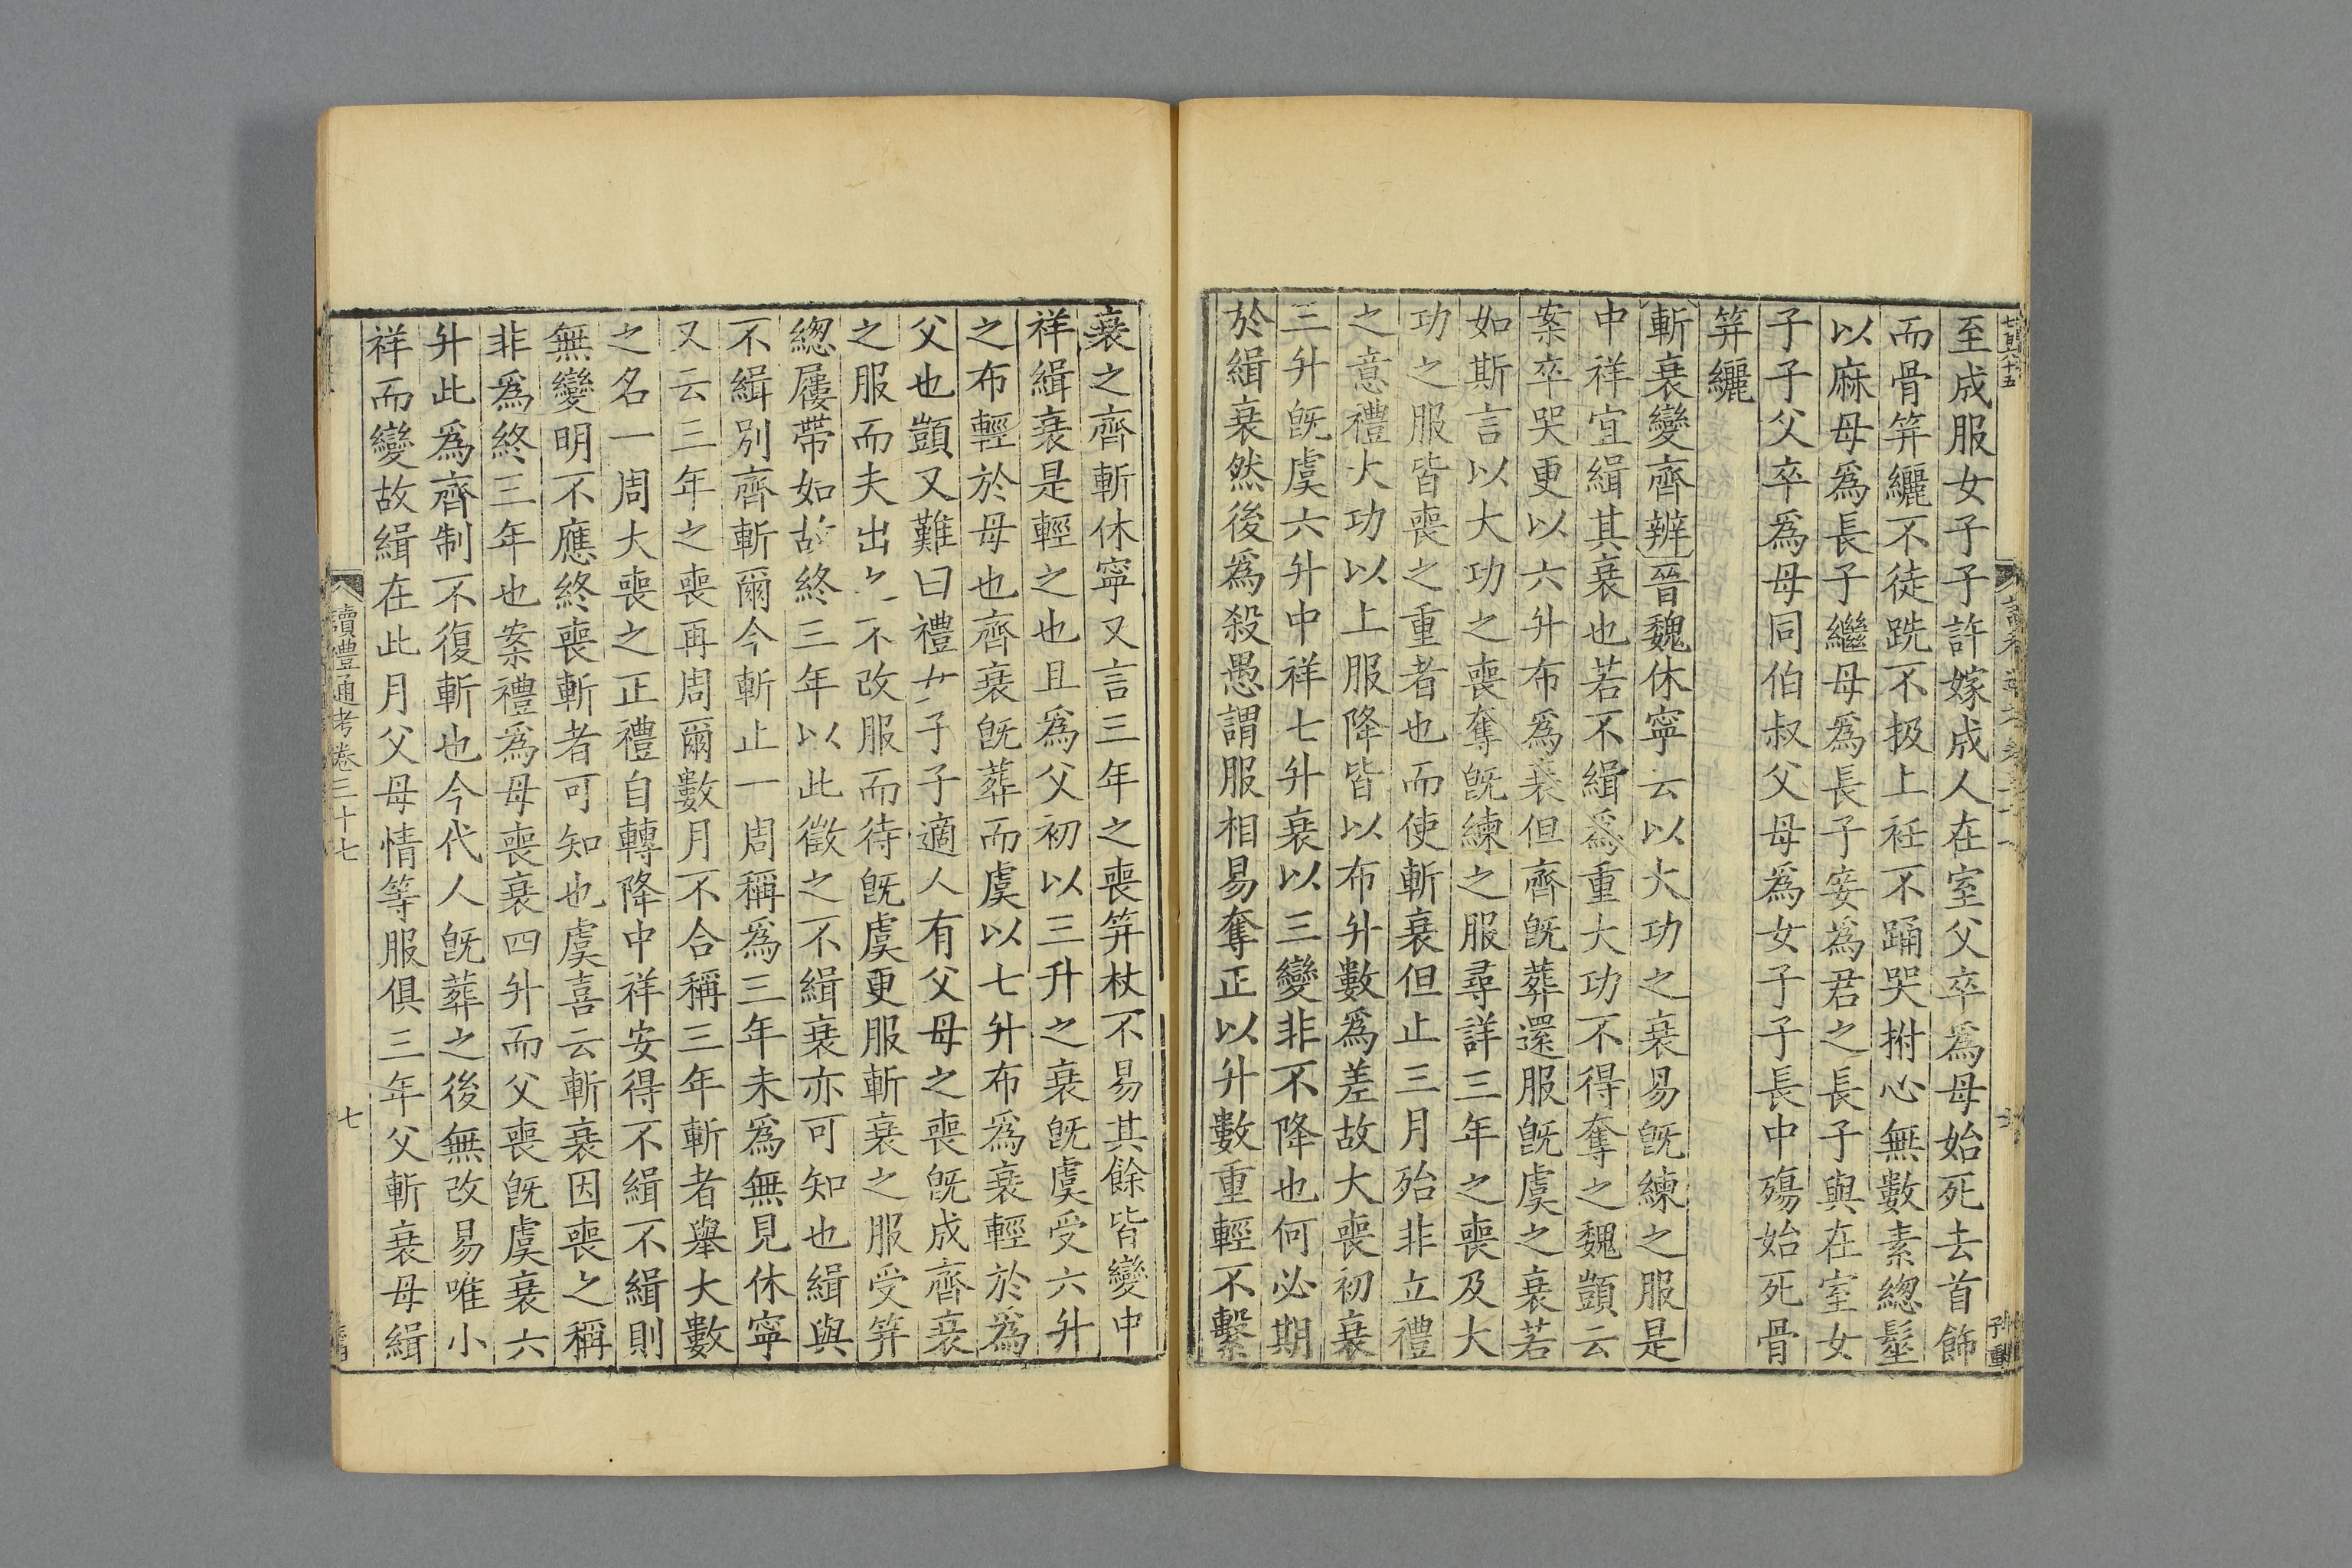 至成服女子子許嫁成人在室父卒為母始死去首飾
而骨笄纚不徒跣不扱上衽不踊哭拊心無數素總髽
以麻母爲長子繼母爲長子妾爲君之長子與在室女
子子父卒爲母同伯叔父母為女子子長中殤始死骨
笄纚
斬衰變齊辨晉魏休寧云以大功之衰易旣練之服是
中祥宜緝其衰也若不緝爲重大功不得奪之魏顗云
案卒哭更以六升布爲衰但齊旣葬還服旣虞之衰若
如斯言以大功之喪奪旣練之服尋詳三年之喪及大
功之服皆喪之重者也而使斬衰但止三月殆非立禮
之意禮大功以上服降皆以布升數爲差故大喪初衰
三升旣虞六升中祥七升衰以三變非不降也何必期
於緝衰然後爲殺愚謂服相易奪正以升數重輕不繫
衰之齊斬休寧又言三年之喪笄杖不易其餘皆變中
祥緝衰是輕之也且爲父初以三升之衰旣虞受六升
之布輕於母也齊衰旣葬而虞以七升布爲衰輕於爲
父也顗又難曰禮女子子適人有父母之喪旣成齊衰
之服而夫出之不改服而待旣虞更服斬衰之服受笄
緫屨帶如故終三年以此徵之不緝衰亦可知也緝與
不緝別齊斬爾今斬止一周稱爲三年未爲無見休寧
又云三年之喪再周爾數月不合稱三年斬者舉大數
之名一周大喪之正禮自轉降中祥安得不緝不緝則
無變明不應終喪斬者可知也虞喜云斬衰因喪之稱
非爲終三年也案禮爲母喪衰四升而父喪旣虞衰六
升此爲齊制不復斬也今代人旣葬之後無改易唯小
祥而變故緝在此月父母情等服俱三年父斬衰母緝
讀禮通考卷三十七
七